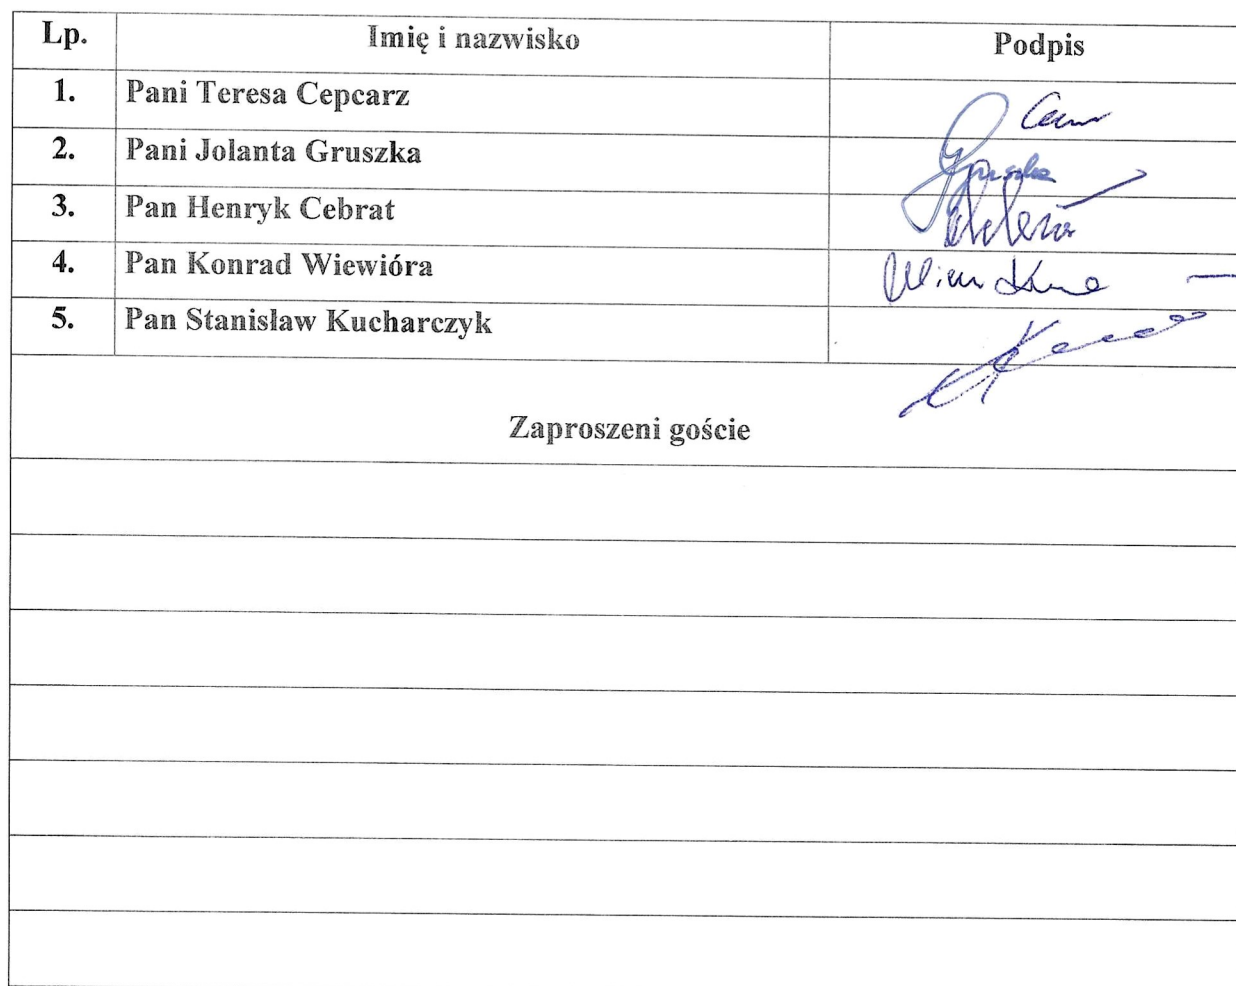 Lp. Imię i nazwisko Podpis
1. Pani Teresa Cepcarz
2. Pani Jolanta Gruszka Gruszka
3. Pan Henryk Cebrat
4. Pan Konrad Wiewióra
5. Pan Stanisław Kucharczyk
Zaproszeni goście